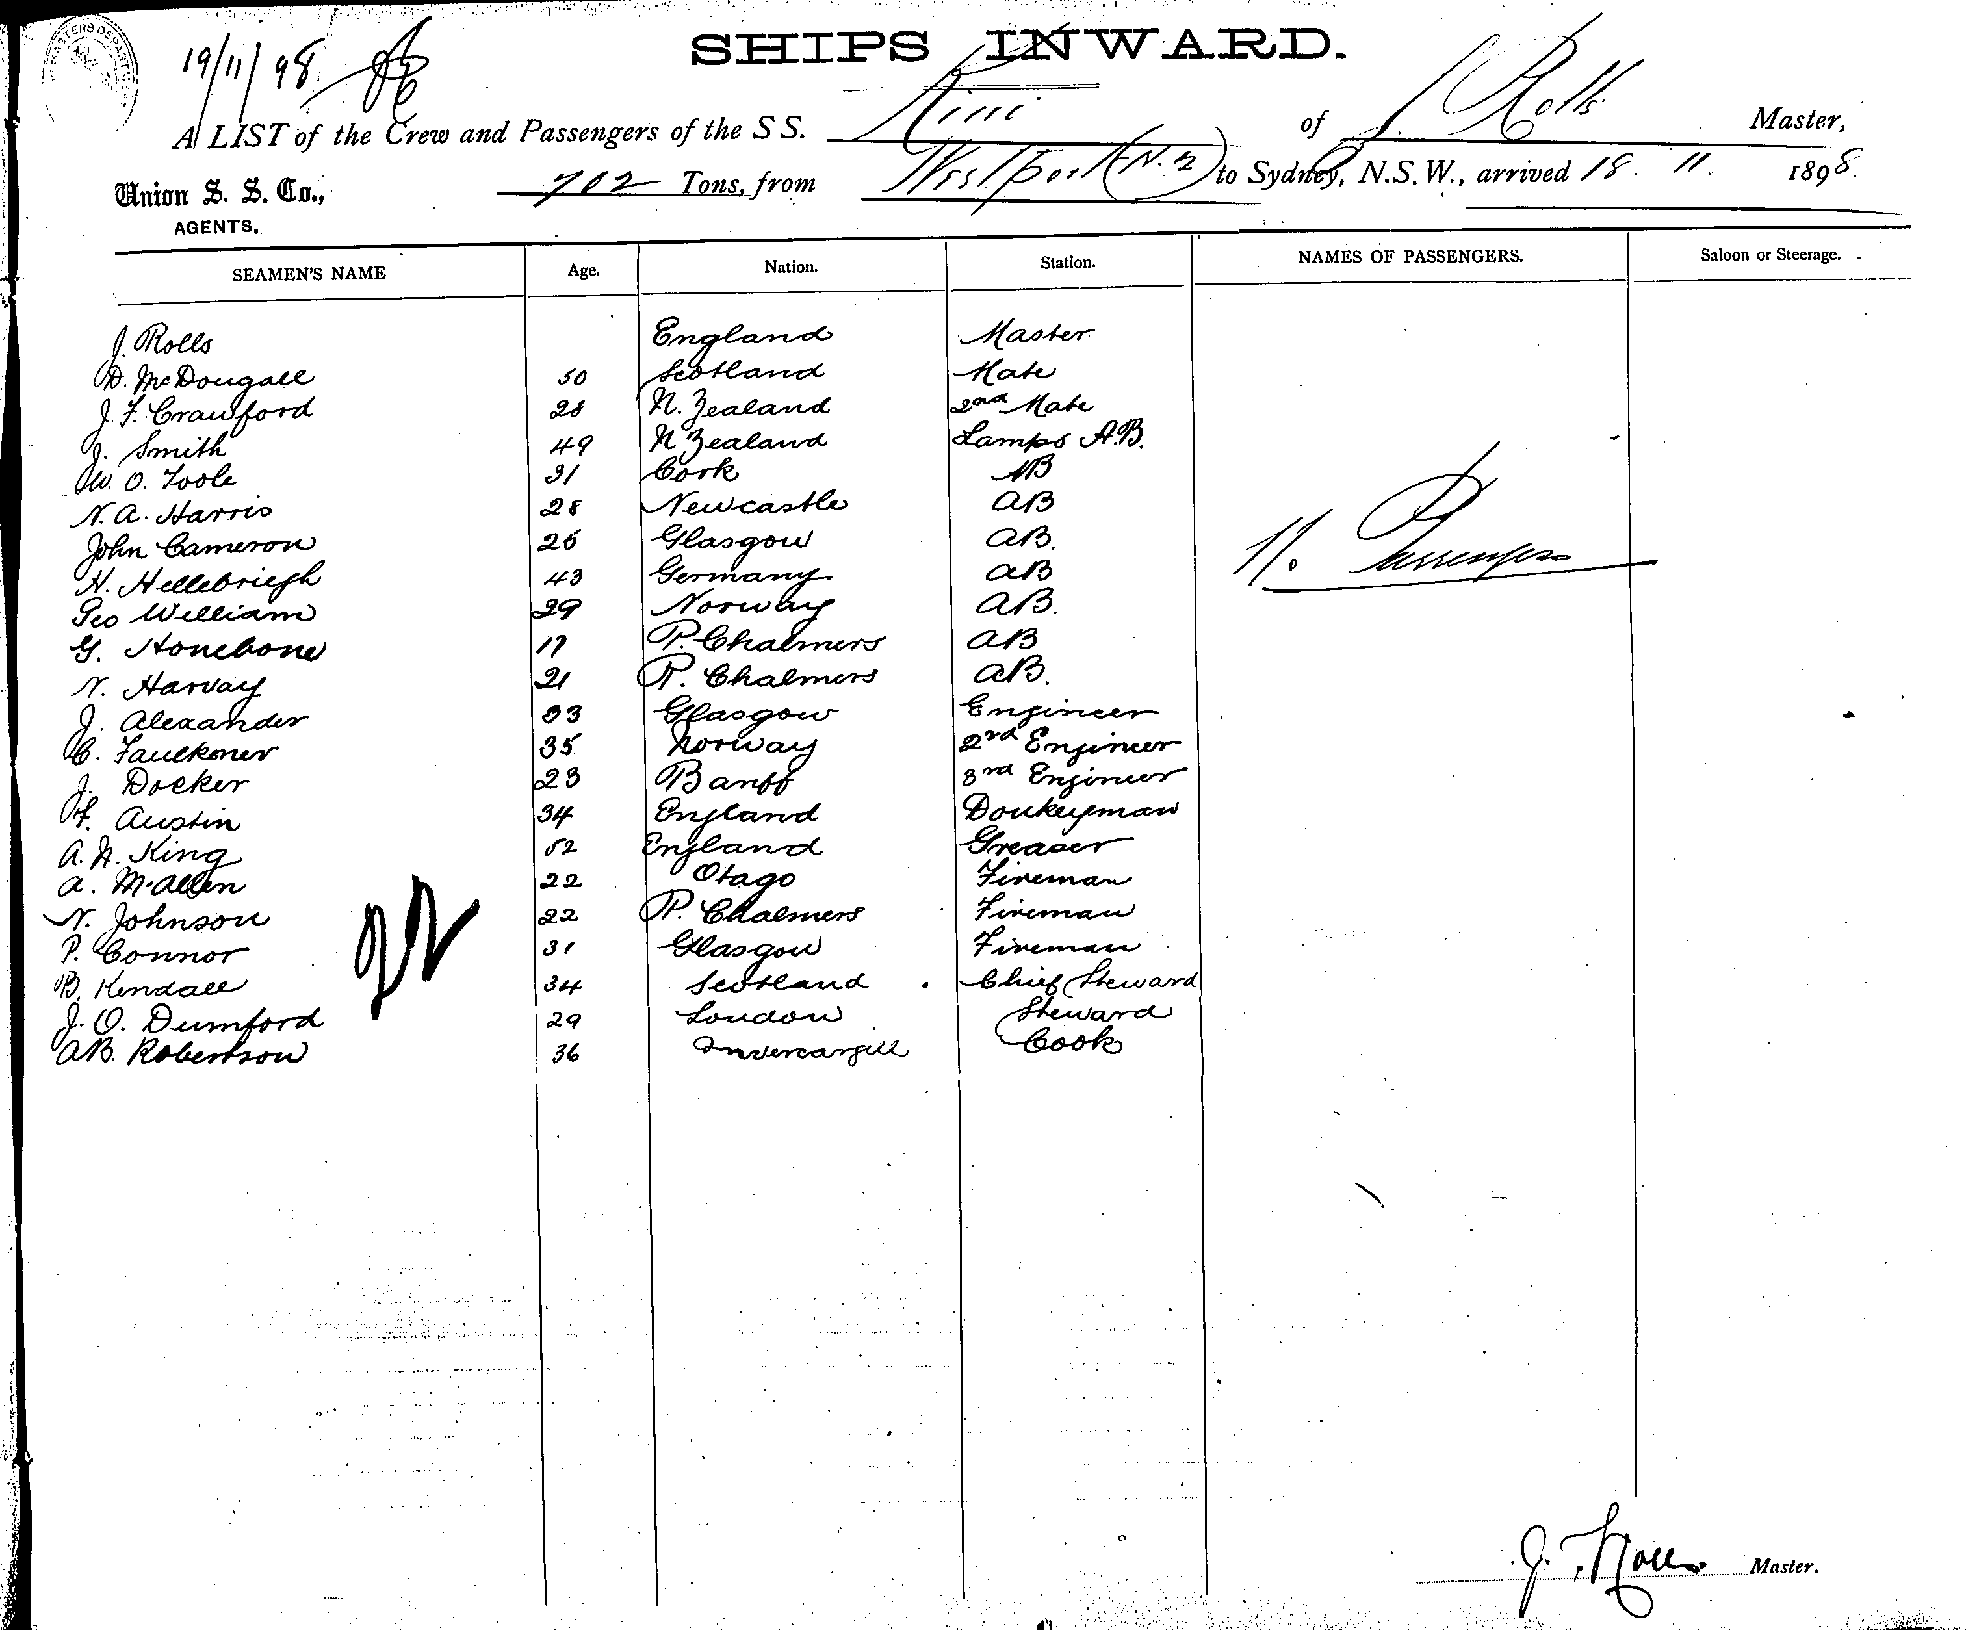 19/11/98
SHIPS INWARD.
A LIST of the Crew and Passengers of the S S. Kini of J Rolls Master,
Union S. S. Co., 702 Tons, from Westport (N.Z) to Sydney, N.S.W., arrived 18. 11. 1898.
AGENTS.
SEAMEN'S NAME Age. Nation. Station. NAMES OF PASSENGERS. Saloon or Steerage.
J. Rolls England Master
D. McDougall 50 Scotland Mate
J. F. Crawford 28 N. Zealand 2nd Mate
J. Smith 49 N Zealand Lamps A.B.
W. O. Toole 31 Cork AB
N. A. Harris 28 Newcastle AB
John Cameron 26 Glasgow AB.
H. Hellebriegh 43 Germany AB
Geo William 29 Norway AB.
G. Honebone 17 P. Chalmers AB
N. Harvay 21 P. Chalmers AB.
J. Alexander 33 Glasgow Engineer
C. Faulkner 35 Norway 2nd Engineer
J. Docker 23 Banff 3rd Engineer
H. Austin 34 England Donkeyman
A. N. King 52 England Greaser
A. McAllen 22 Otago Fireman
N. Johnson 22 P. Chalmers Fireman
P. Connor 31 Glasgow Fireman
B. Kendall 34 Scotland Chief Steward
J. O. Dumford 29 London Steward
AB. Robertson 36 Invercargill Cook
No Passengers
22
J. Rolls Master.